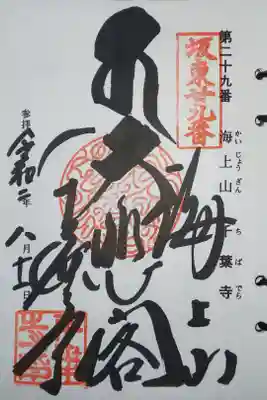 第二十九番 海上山 千葉寺
かい じょう ざん ち ば でら
坂東廿九番
大悲閣
海上山
千葉寺
参拝 令和二年 八月十一日